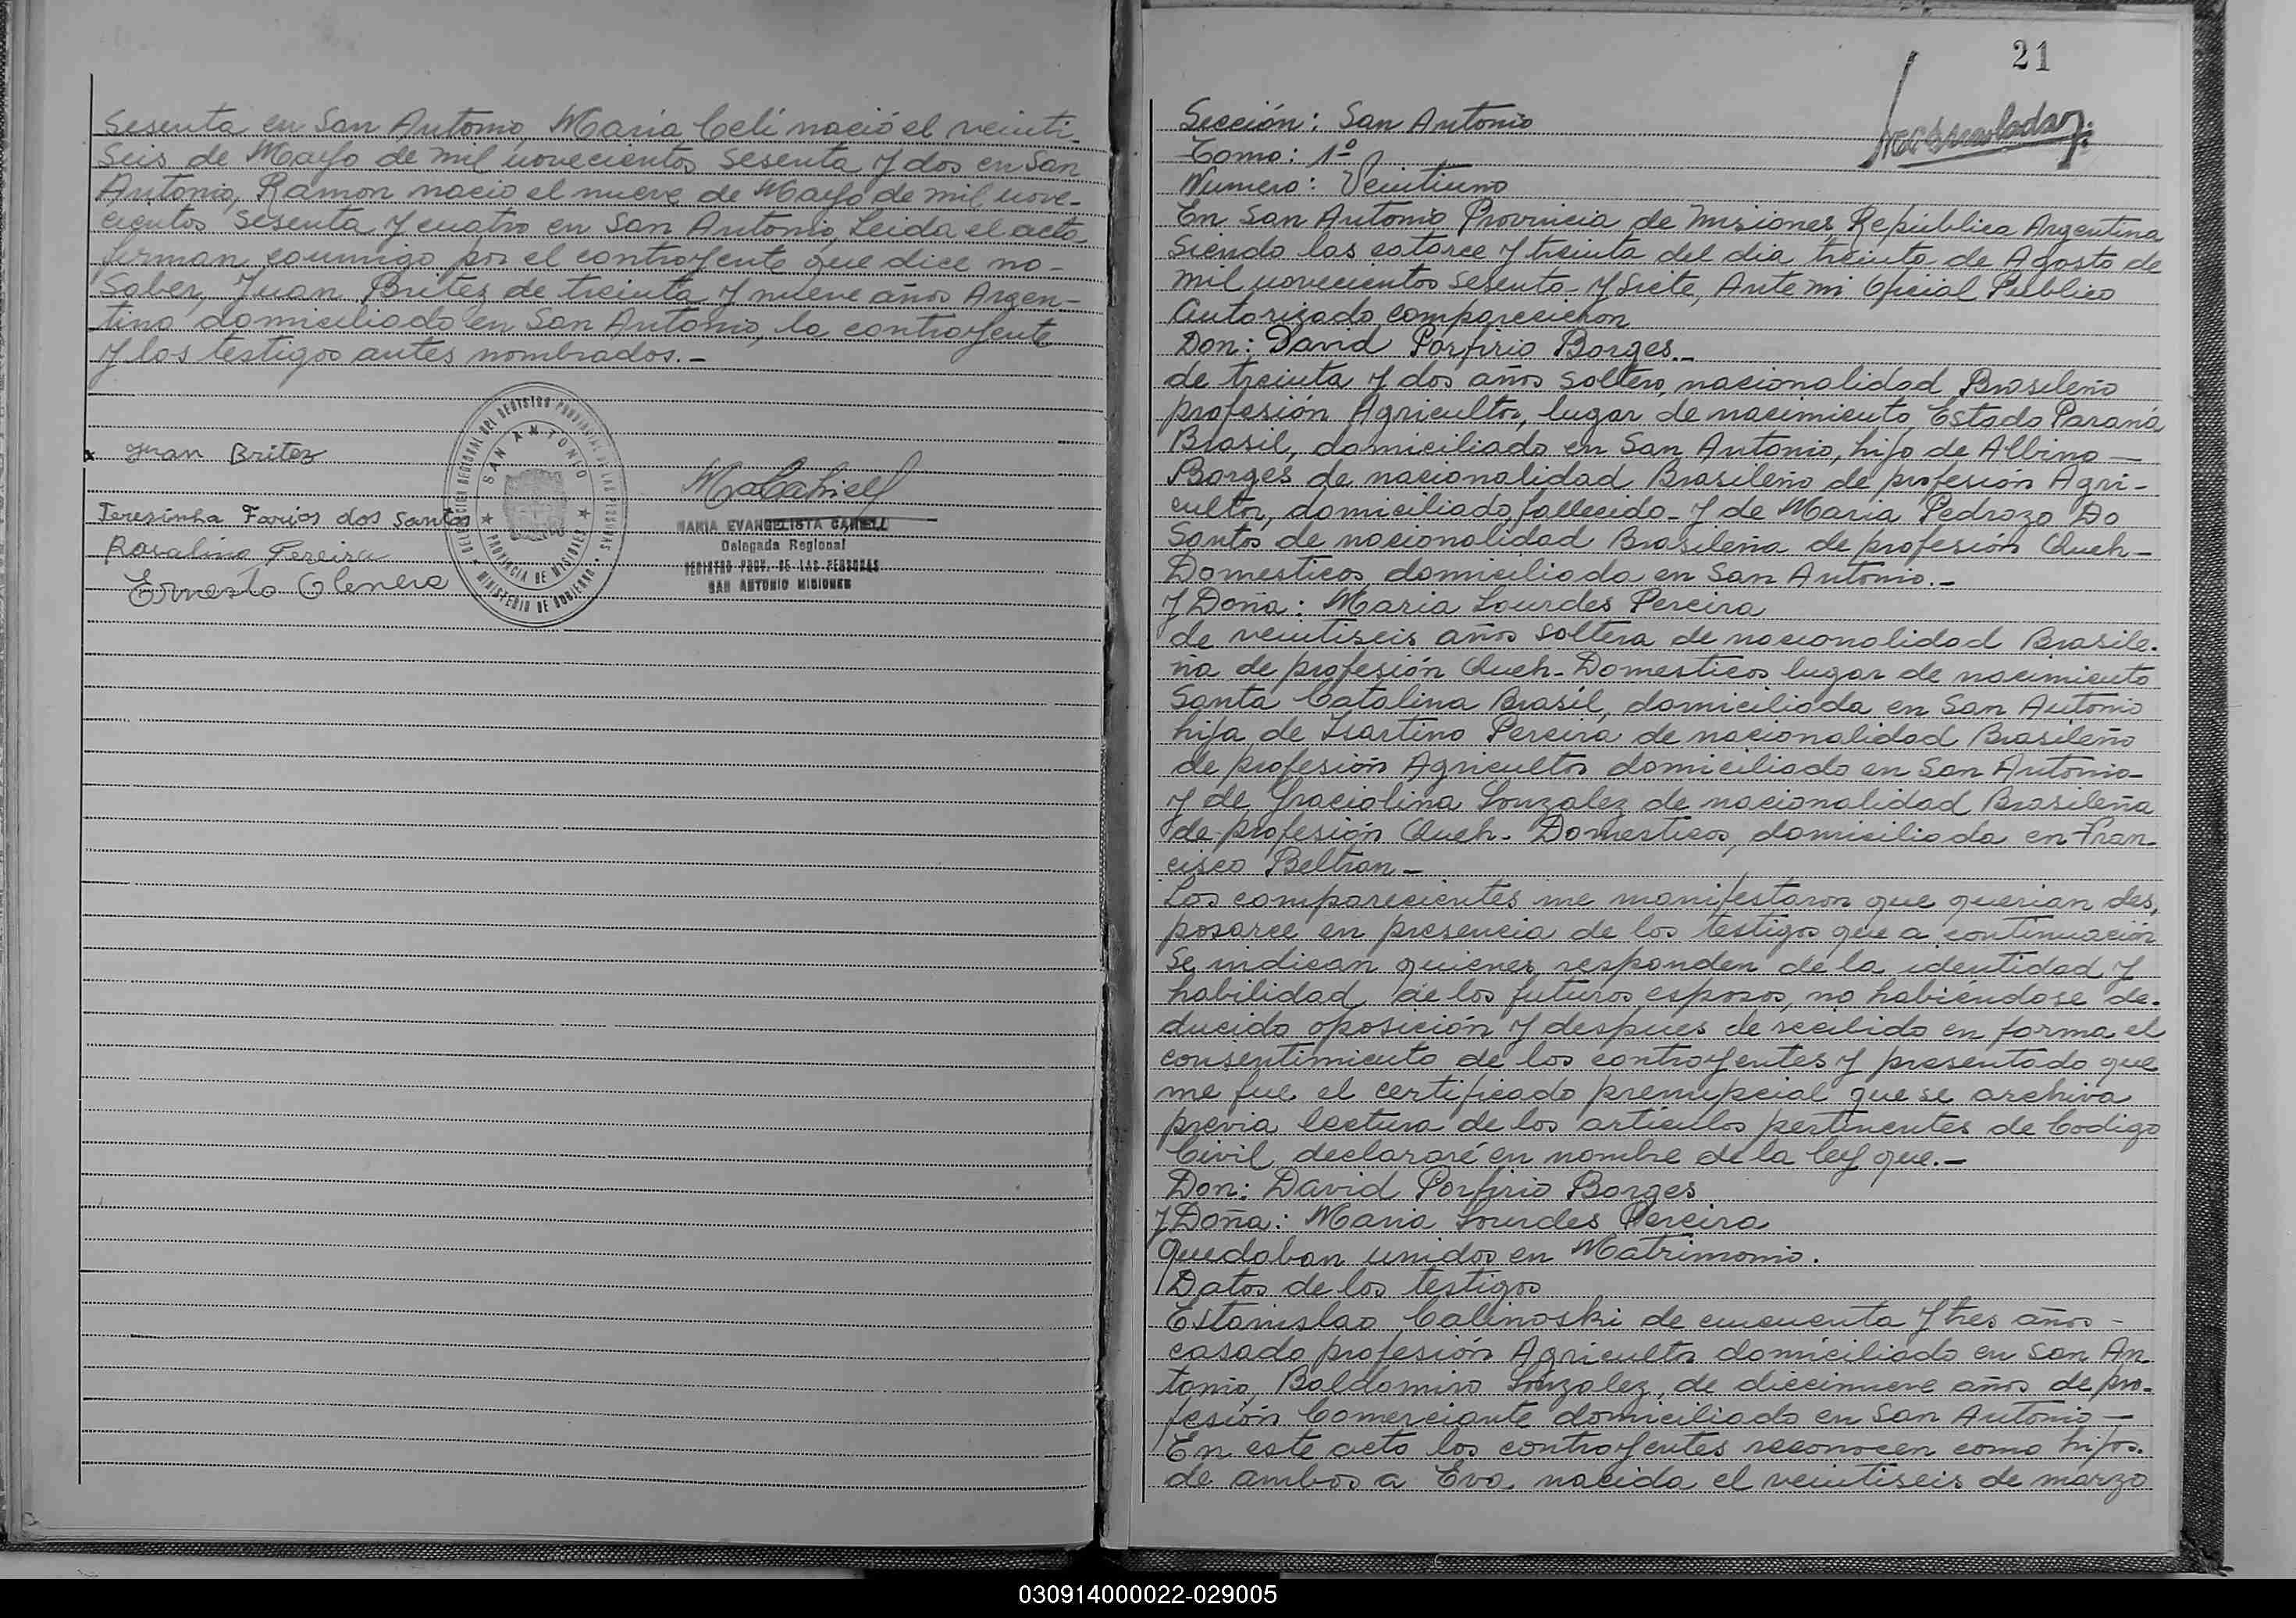 Sesenta en San Antonio, Maria Celi nació el veinti-
seis de Mayo de mil novecientos sesenta y dos en San
Antonio, Ramon nacio el nueve de Mayo de mil nove-
cientos sesenta y cuatro en San Antonio, Leida el acta
firman conmigo por el contrayente que dice no-
saber, Juan Britez de treinta y nueve años Argen-
tino domiciliado en San Antonio, la contrayente
y los testigos antes nombrados.-
Juan Britez
Teresinha Farias dos Santos
Rosalino Pereira
Ernesto
DELEGACION REGIONAL DEL REGISTRO PROVINCIAL DE LAS PERSONAS
SAN ANTONIO
PROVINCIA DE MISIONES
MINISTERIO DE GOBIERNO
MARIA EVANGELISTA CAHIELL
Delegada Regional
REGISTRO PROV. DE LAS PERSONAS
SAN ANTONIO MISIONES
21
Sección: San Antonio
Tomo: 1º
Numero: Veintiuno
En San Antonio Provincia de Misiones, República Argentina
siendo las catorce y treinta del dia treinta de Agosto de
mil novecientos sesenta y siete, Ante mi Oficial Público
Autorizado comparecieron
Don: David Porfirio Borges.-
de treinta y dos años soltero, nacionalidad Brasileño
profesión Agricultor, lugar de nacimiento Estado Paraná
Brasil, domiciliado en San Antonio, hijo de Albino —
Borges de nacionalidad Brasileño de profesión Agri-
cultor, domiciliado fallecido - y de Maria Pedrozo Do
Santos de nacionalidad Brasileña de profesión Queh-
Domesticos, domiciliada en San Antonio.-
y Doña: Maria Lourdes Pereira
de veintiseis años soltera de nacionalidad Brasile-
ña de profesión Queh- Domesticos lugar de nacimiento
Santa Catalina Brasil, domiciliada en San Antonio
hija de Pereira de nacionalidad Brasileño
de profesión Agricultor domiciliado en San Antonio-
y de Graciolina Gonzalez de nacionalidad Brasileña
de profesión Queh- Domesticos, domiciliada en Fran-
cisco Beltran -
Los comparecientes me manifestaron que querian des,
posarce en presencia de los testigos que a continuación
se indican quienes responden de la identidad y
habilidad de los futuros esposos, no habiéndose de-
ducido oposición y despues de recibido en forma el
consentimiento de los contrayentes y presentado que
me fue el certificado prenupcial que se archiva
previa lectura de los artículos pertinentes de Codigo
Civil declararé en nombre de la ley que.-
Don: David Porfirio Borges
y Doña: Maria Lourdes Pereira
quedaban unidos en Matrimonio.
Datos de los testigos
Estanislao Calinoski de cincuenta y tres años -
casado profesión Agricultor domiciliado en San An-
tonio, Baldomiro Gonzalez, de diecinueve años de pro-
fesión Comerciante domiciliado en San Antonio —
En este acto los contrayentes reconocen como hijos.
de ambos a Eva nacida el veintiseis de marzo
030914000022-029005